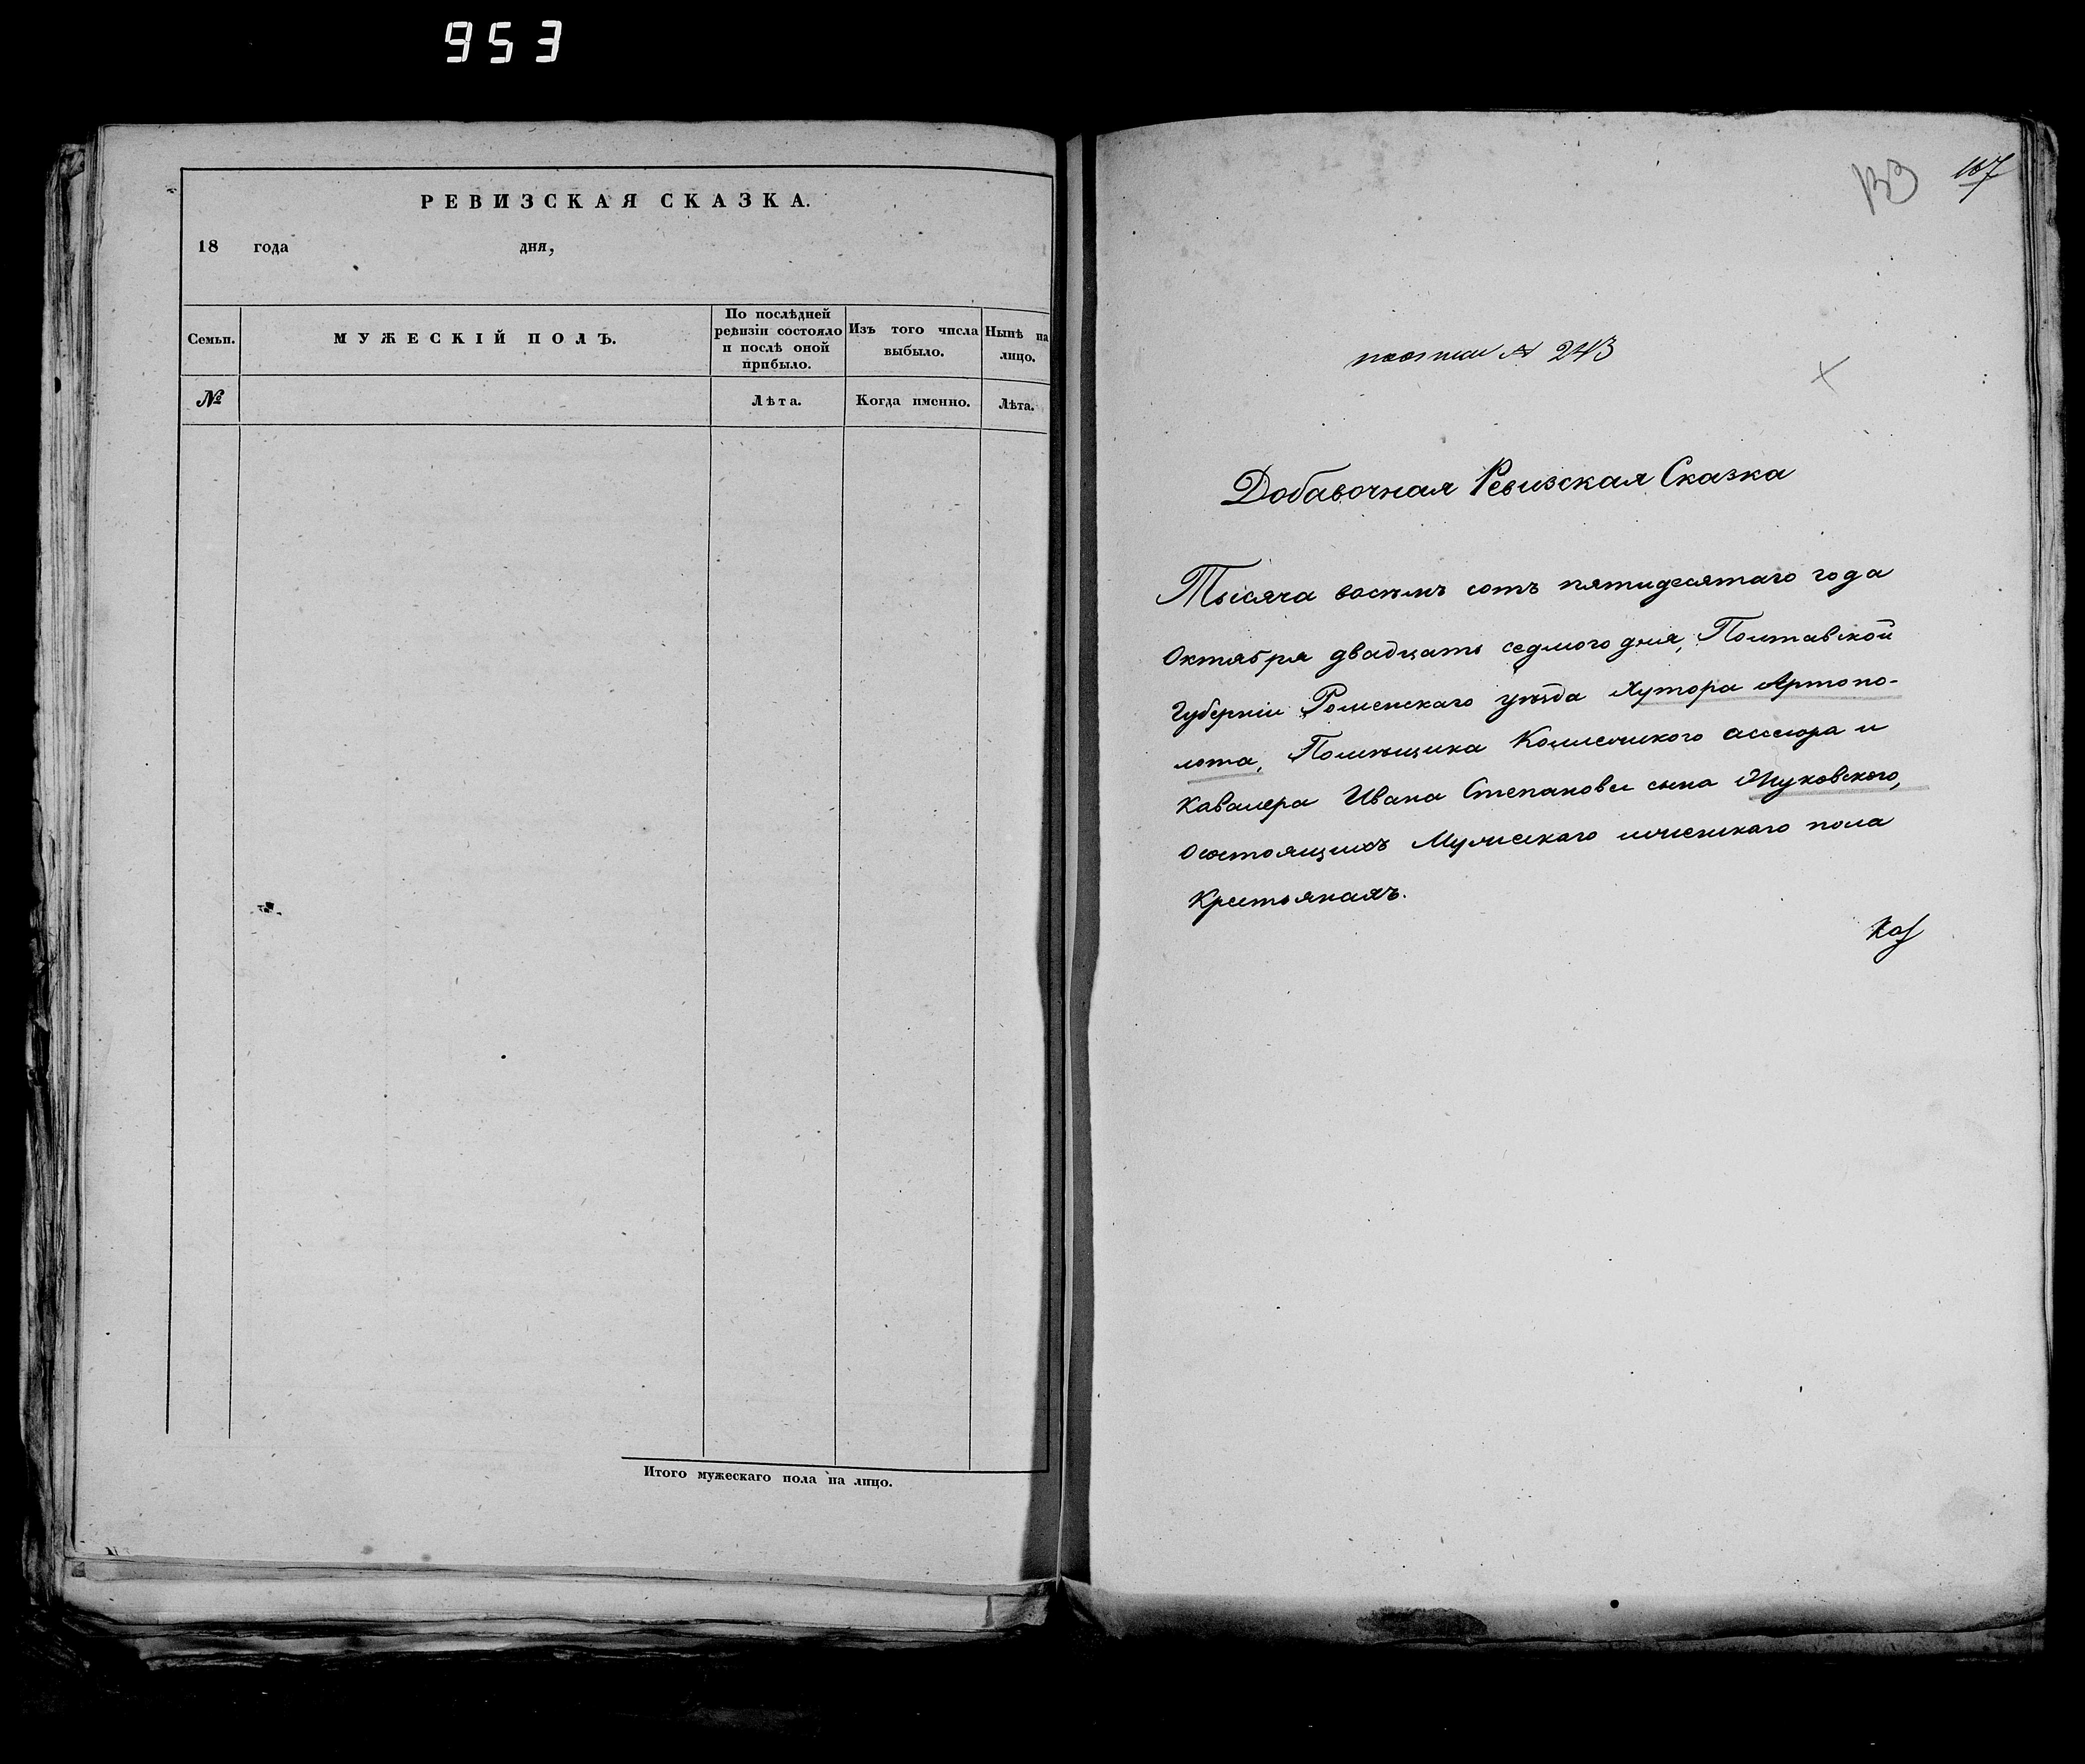 953
РЕВИЗСКАЯ СКАЗКА.
18 года дня,
Семьи.
МУЖЕСКІЙ ПОЛЪ.
По послѣдней ревизіи состояло и послѣ оной прибыло.
Изъ того числа выбыло.
Нынѣ на лицо.
№
Лѣта.
Когда именно.
Лѣта.
Итого мужескаго пола на лицо.
133 167
№ 243
Добавочная Ревизская Сказка
Тысяча восемъ сотъ пятидесятаго года
Октября двадцать седмого дня, Полтавской
Губерніи Роменскаго уѣзда Хутора Артопо-
лота, Помѣщика Коллежского ассесора и
Кавалера Ивана Степанова сына Жуковского,
О состоящихъ Мужескаго иженскаго пола
Крестьянахъ.